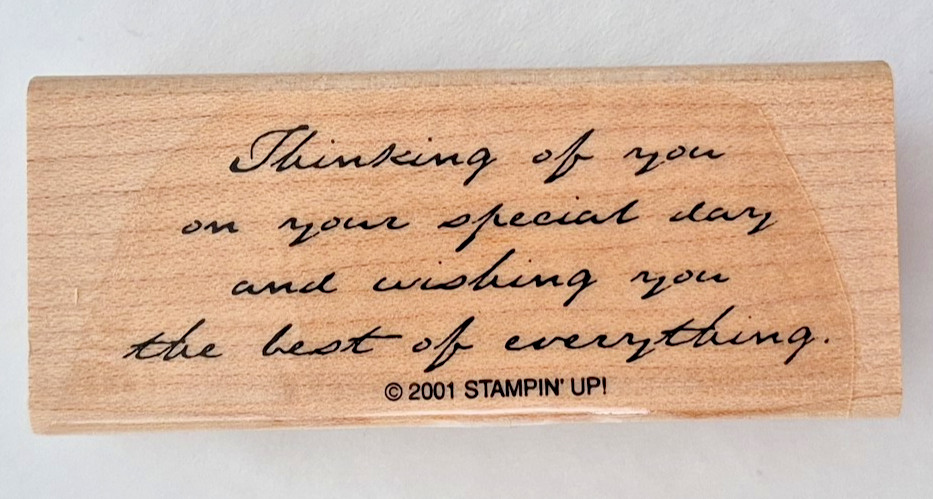 Thinking of you
on your special day
and wishing you
the best of everything.
© 2001 STAMPIN' UP!